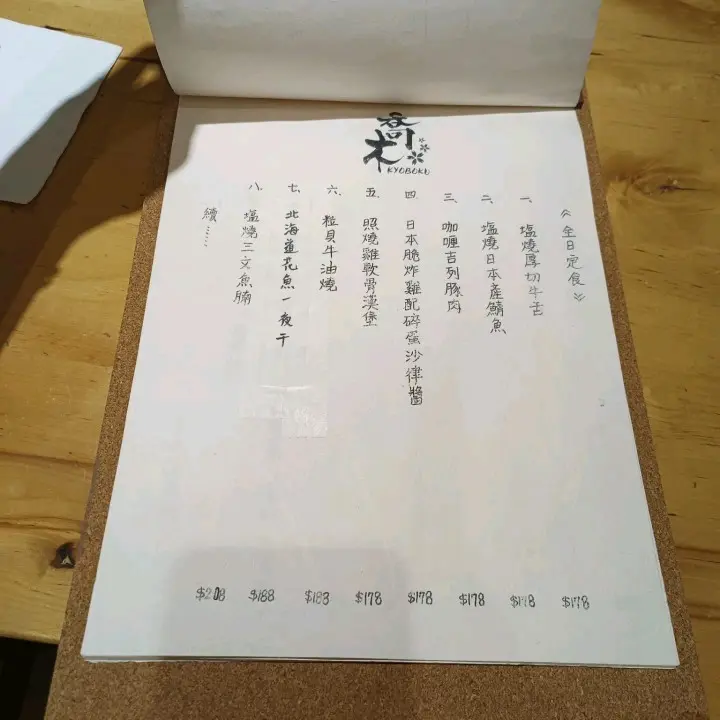 喬木
KYOBOKU
《全日定食》
一、塩燒厚切牛舌
$178
二、塩燒日本產鯖魚
三、咖喱吉列豚肉
$178
四、日本脆炸雞配碎蛋沙律醬
$178
五、照燒雞軟骨漢堡
$178
六、粒貝牛油燒
七、北海道花魚一夜干
$188
八、塩燒三文魚腩
$208
續……